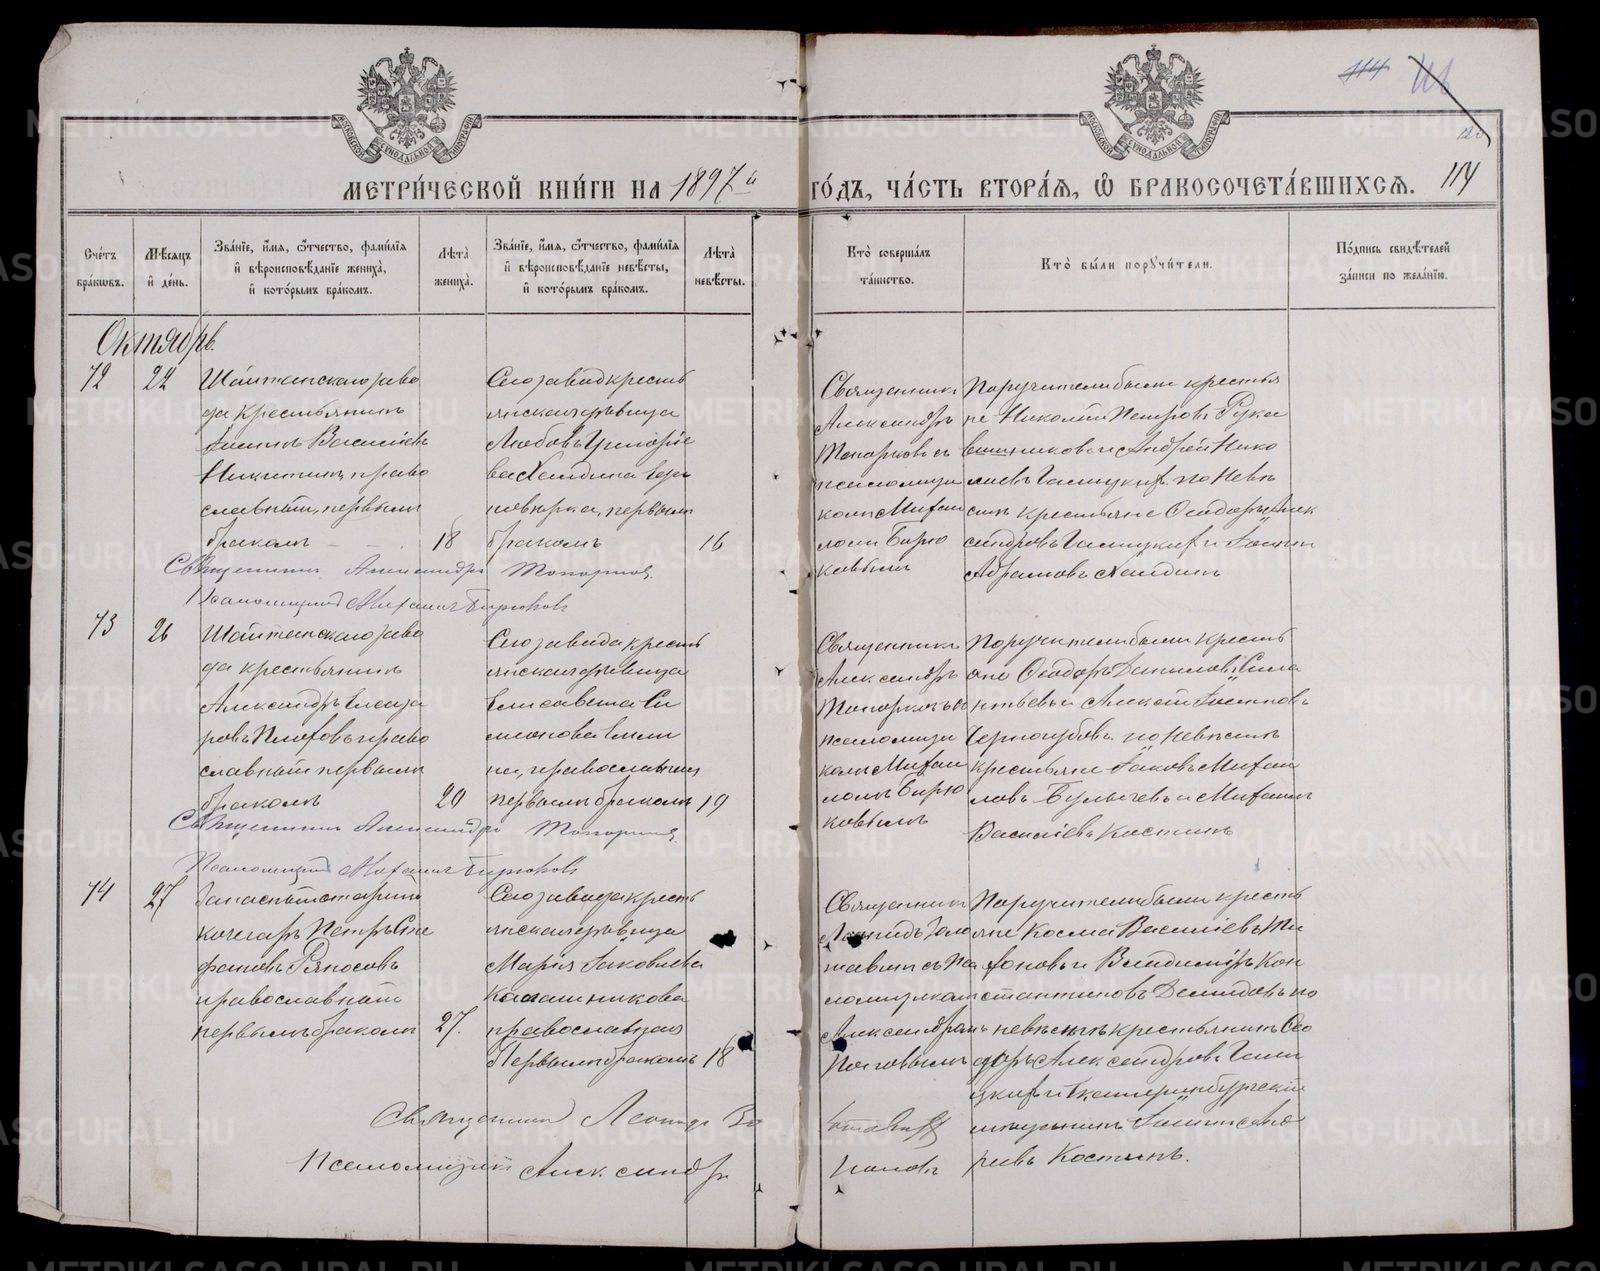 114
120
МЕТРИ́ЧЕСКОЙ КНИ́ГИ НА 1897 й ГО́ДЪ, ЧА́СТЬ ВТОРА́Я, Ѽ БРАКОСОЧЕТА́ВШИХСѦ. 114
Сче́тъ бра́ковъ.
Мѣ́сяцъ и҆ де́нь.
Зва́нїе, и҆́мя, ѻ҆́тчество, фами́лїя и҆ вѣроисповѣ́данїе жениха̀, и҆ кото́рымъ бра́комъ.
Лѣ́та жениха̀.
Зва́нїе, и҆́мя, ѻ҆́тчество, фами́лїя и҆ вѣроисповѣ́данїе невѣ́сты, и҆ кото́рымъ бра́комъ.
Лѣ́та невѣ́сты.
Кто̀ соверша́лъ та́инство.
Кто̀ бы́ли порꙋчи́тели.
По́дпись свидѣ́телей за́писи по жела́нїю.
Октябрь.
72
22
Шайтанскаго заво
да крестьянинъ
Іаковъ Васильевъ
Никитинъ, право
славный, первымъ
бракомъ
18
Сего завода кресть
янская дѣвица
Любовь Григорье
ва Хандина
первымъ
бракомъ
16
Священникъ
Александръ
Топорковъ съ
псаломщи
комъ Михаи
ломъ Бирю
ковымъ
Поручители были крестья
не Николай Петровъ Рука
вишниковъ и Андрей Нико
лаевъ Галицкихъ по невѣ
стѣ крестьяне Ѳеодоръ Алек
сандровъ Галицкихъ и
Абрамовъ Хандинъ
Священникъ Александръ Топорковъ
Псаломщикъ Михаилъ Бирюковъ
73
26
Шайтанскаго заво
да крестьянинъ
Александръ Елеаза
ровъ право
славный первымъ
бракомъ
20
Сего завода кресть
янская дѣвица
Елисавета Си
меонова
на, православная
первымъ бракомъ
19
Священникъ
Александръ
Топорковъ съ
псаломщи
комъ Михаи
ломъ Бирю
ковымъ
Поручители были кресть
яне Ѳеодоръ Даниловъ
и Алексѣй
по невѣстѣ
крестьяне Іаковъ Михаи
ловъ и Михаилъ
Васильевъ Костинъ
Священникъ Александръ Топорковъ
Псаломщикъ Михаилъ Бирюковъ
74
27
Запасный старшій
кочегаръ Петръ Епи
фановъ Ряпосовъ
православный
первымъ бракомъ
27.
Сего завода кресть
янская дѣвица
Марія Іаковлева
Калашникова
православная
Первымъ бракомъ
18
Священникъ
Леонидъ Золо
тавинъ съ пса
ломщикомъ
Александромъ
Поповымъ
Поручители были кресть
яне Косма Васильевъ
и Владиміръ Кон
стантиновъ Демидовъ по
невѣстѣ крестьянинъ Ѳео
доръ Александровъ Гали
цкихъ и Екатеринбургскій
мѣщанинъ
Костинъ.
Священникъ Леонидъ Золотавинъ
Псаломщикъ Александръ Поповъ
METRIKI.GASO-URAL.RU